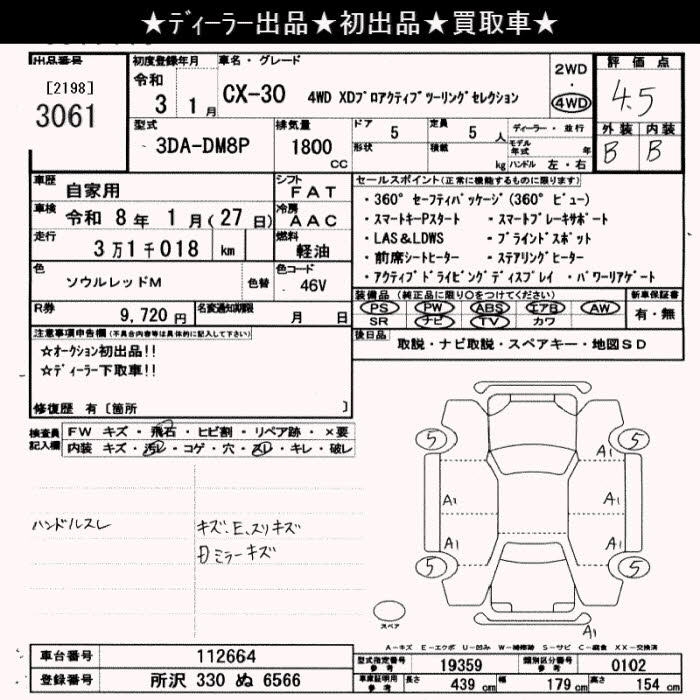 ★ディーラー出品★初出品★買取車★
出品番号
[2198]
3061
初度登録年月
令和
3 1月
車名・グレード
CX-30 4WD XDプロアクティブツーリングセレクション
2WD
・
4WD
評価点
4.5
外装 内装
B B
型式
3DA-DM8P
排気量
1800
cc
ドア 5
形状
定員 5 人
積載 kg
ディーラー・並行
モデル年式 年
ハンドル 左・右
車歴 自家用
車検 令和 8年 1月(27日)
走行 3万1千018 km
シフト FAT
冷房 AAC
燃料 軽油
色 ソウルレッドM 色替
色コード 46V
R券 9,720円
名変通知期限 月 日
セールスポイント(正常に機能するものに限ります)
・360°セーフティパッケージ(360°ビュー)
・スマートキーPスタート ・スマートブレーキサポート
・LAS&LDWS ・ブラインドスポット
・前席シートヒーター ・ステアリングヒーター
・アクティブドライビングディスプレイ ・パワーリアゲート
装備品(純正品に限り○をつけてください)
PS PW ABS エアB AW
SR ナビ TV カワ
新車保証書
有・無
後日品 取説・ナビ取説・スペアキー・地図SD
注意事項申告欄(不具合内容等は具体的に記入して下さい)
☆オークション初出品!!
☆ディーラー下取車!!
修復歴 有〔箇所 〕
検査員記入欄
FW キズ・飛石・ヒビ割・リペア跡・×要
内装 キズ・汚レ・コゲ・穴・スレ・キレ・破レ
ハンドルスレ
キズ、E、スリキズ
日ミラーキズ
5 5
A1
A1 A1
A1 A1
5 5
スペア
A1
A-キズ E-エクボ U-凹み W-補修跡 S-サビ C-腐食 XX-交換済
車台番号 112664
登録番号 所沢 330 ぬ 6566
型式指定番号 参考 19359
類別区分番号 参考 0102
車庫証明用 参考 長さ 439cm 幅 179cm 高さ 154cm